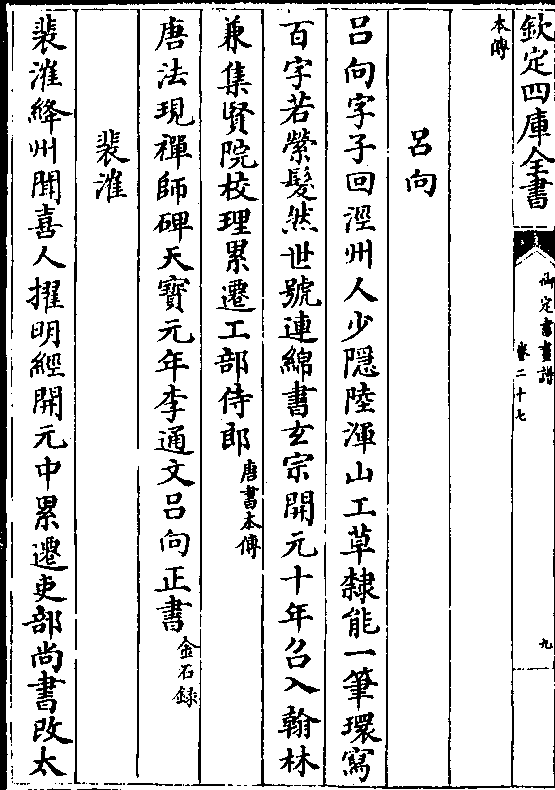 欽定四庫全書
御定書畫譜
卷二十七
九
本傳
吕向
吕向字子回涇州人少隱陸渾山工草隸能一筆環寫
百字若縈髮然世號連綿書玄宗開元十年召入翰林
兼集賢院校理累遷工部侍郎唐書本傳
唐法現禪師碑天寶元年李通文吕向正書金石録
裴漼
裴漼絳州聞喜人擢明經開元中累遷吏部尚書改太